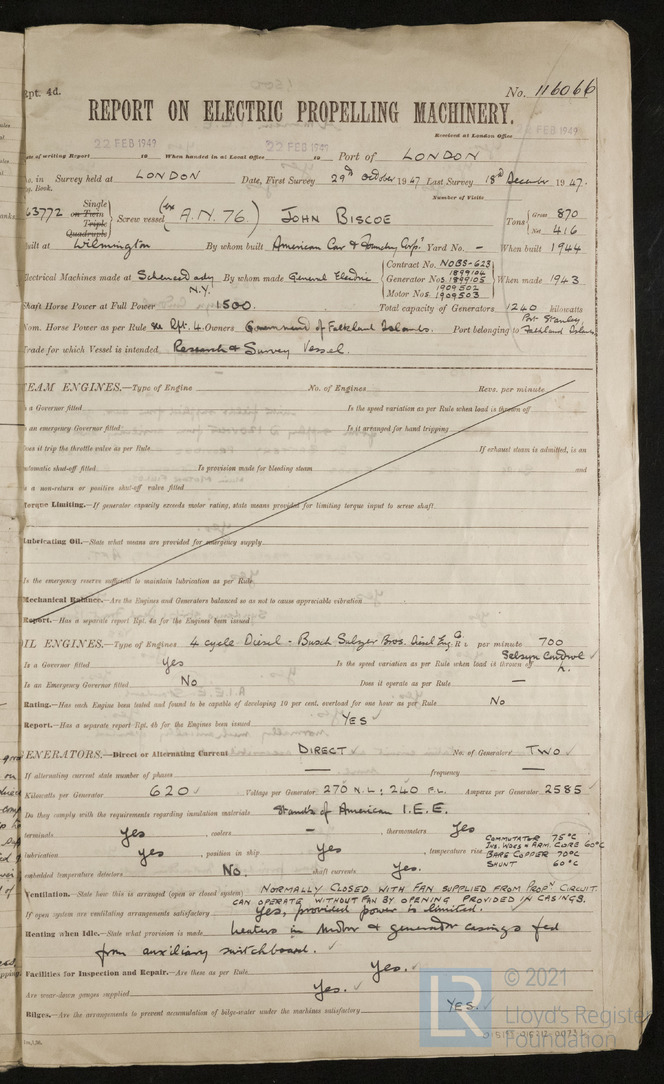 Rpt. 4d.
No. 116066
REPORT ON ELECTRIC PROPELLING MACHINERY.
Received at London Office
22 FEB 1949
22 FEB 1949
22 FEB 1949
Date of writing Report 19 When handed in at Local Office 19 Port of LONDON
No. in Survey held at LONDON Date, First Survey 29th October 1947 Last Survey 18th December 1947.
Reg. Book.
Number of Visits
63772 Single on Twin Triple Quadruple Screw vessel (ex A.N. 76.) JOHN BISCOE Tons Gross 870 Net 416
Built at Wilmington By whom built American Car & Foundry Corpn. Yard No. - When built 1944
Electrical Machines made at Schenectady N.Y. By whom made General Electric Contract No. NOBS-623 Generator Nos 1899104 1899105 Motor Nos. 1909502 1909503 When made 1943
Shaft Horse Power at Full Power 1500. Total capacity of Generators 1240 kilowatts
Nom. Horse Power as per Rule see Rpt. 4. Owners Government of Falkland Islands. Port belonging to Port Stanley Falkland Islands
Trade for which Vessel is intended Research & Survey Vessel.
STEAM ENGINES.—Type of Engine No. of Engines Revs. per minute
Is a Governor fitted Is the speed variation as per Rule when load is thrown off
Is an emergency Governor fitted Is it arranged for hand tripping
Does it trip the throttle valve as per Rule If exhaust steam is admitted, is an
automatic shut-off fitted Is provision made for bleeding steam and
is a non-return or positive shut-off valve fitted
Torque Limiting.—If generator capacity exceeds motor rating, state means provided for limiting torque input to screw shaft
Lubricating Oil.—State what means are provided for emergency supply
Is the emergency reserve sufficient to maintain lubrication as per Rule
Mechanical Balance.—Are the Engines and Generators balanced so as not to cause appreciable vibration
Report.—Has a separate report Rpt. 4a for the Engines been issued
OIL ENGINES.—Type of Engines 4 cycle Diesel - Busch Sulzer Bros. Diesel Eng. Co. per minute 700
Is a Governor fitted Yes Is the speed variation as per Rule when load is thrown off Selsyn Control
Is an Emergency Governor fitted No Does it operate as per Rule —
Rating.—Has each Engine been tested and found to be capable of developing 10 per cent. overload for one hour as per Rule No
Report.—Has a separate report Rpt. 4b for the Engines been issued YES
GENERATORS.—Direct or Alternating Current DIRECT No. of Generators TWO
If alternating current state number of phases — frequency —
Kilowatts per Generator 620 Voltage per Generator 270 N.L; 240 F.L. Amperes per Generator 2585
Do they comply with the requirements regarding insulation materials Standts of American I.E.E.
terminals yes, coolers —, thermometers yes
lubrication yes, position in ship yes, temperature rise COMMUTATOR 75°C INS. WDGS & ARM. CORE 60°C BARE COPPER 70°C SHUNT 60°C
embedded temperature detectors No. shaft currents Yes.
Ventilation.—State how this is arranged (open or closed system) NORMALLY CLOSED WITH FAN SUPPLIED FROM PROPN CIRCUIT.
CAN OPERATE WITHOUT FAN BY OPENING PROVIDED IN CASINGS.
If open system are ventilating arrangements satisfactory Yes, provided power is limited.
Heating when Idle.—State what provision is made heaters in motor & generator casings fed
from auxiliary switchboard.
Facilities for Inspection and Repair.—Are these as per Rule Yes.
Are wear-down gauges supplied Yes.
Bilges.—Are the arrangements to prevent accumulation of bilge-water under the machines satisfactory YES.
LR © 2021
Lloyd's Register
Foundation